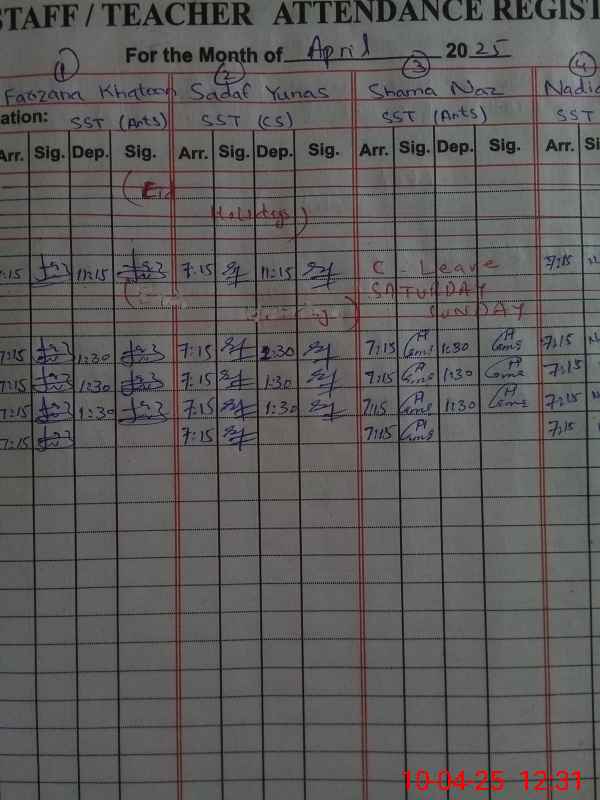 STAFF / TEACHER ATTENDANCE REGIST
For the Month of April 2025
1 2 3 4
Farzana Khatoon Sadaf Yunas Shama Naz Nadia
ation: SST (Arts) SST (CS) SST (Arts) SST
Arr. Sig. Dep. Sig. Arr. Sig. Dep. Sig. Arr. Sig. Dep. Sig. Arr. Si
(Eid
Holidays)
:15 11:15 7:15 11:15 C. Leave 7:15 N
SATURDAY
SUNDAY
7:15 1:30 7:15 1:30 7:15 1:30 7:15 N
7:15 1:30 7:15 1:30 7:15 1:30 7:15
7:15 1:30 7:15 1:30 7:15 1:30 7:15 N
7:15 7:15 7:15 7:15
10-04-25 12:31